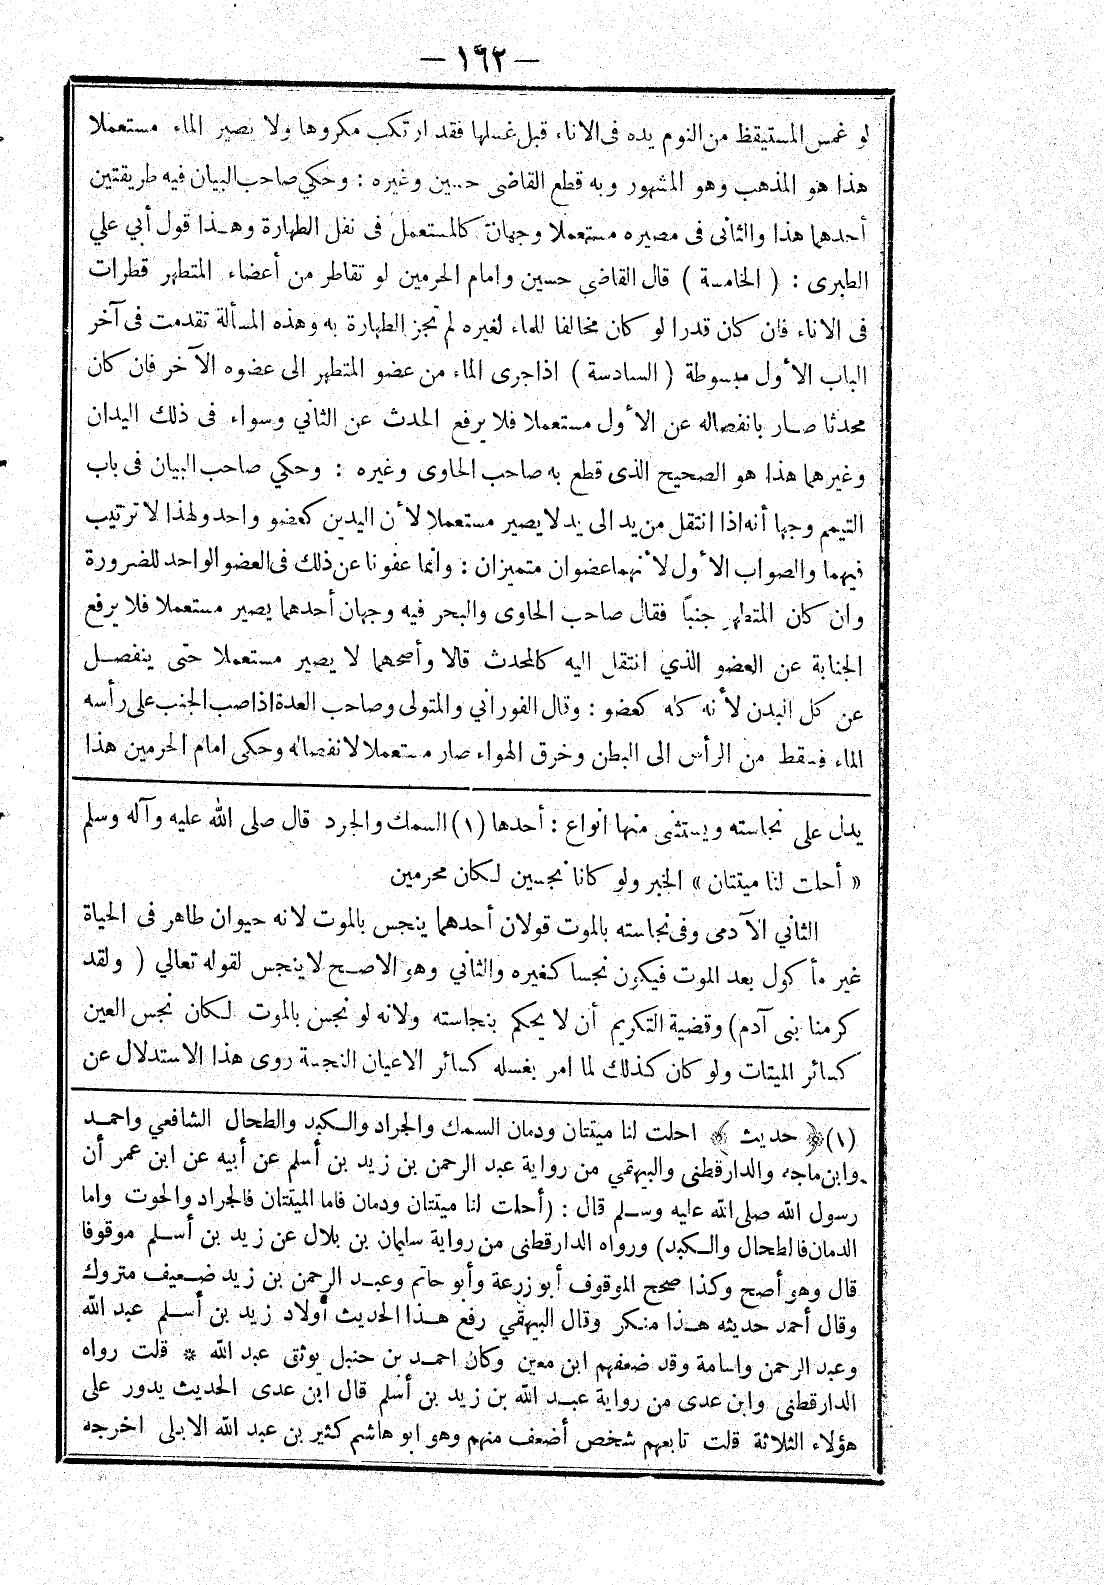 — ١٦٢ —
لو غمس المستيقظ من النوم يده فى الاناء قبل غسلها فقد ارتكب مكروها ولا يصير الماء مستعملا
هذا هو المذهب وهو المشهور وبه قطع القاضى حسين وغيره : وحكي صاحب البيان فيه طريقتين
أحدهما هذا والثانى فى مصيره مستعملا وجهان كالمستعمل فى نفل الطهارة وهـذا قول أبي علي
الطبرى : ( الخامسة ) قال القاضي حسين وامام الحرمين لو تقاطر من أعضاء المتطهر قطرات
فى الاناء فان كان قدرا لو كان مخالفا للماء لغيره لم تجز الطهارة به وهذه المسألة تقدمت فى آخر
الباب الأول مبسوطة ( السادسة ) اذا جرى الماء من عضو المتطهر الى عضوه الآخر فان كان
محدثا صـار بانفصاله عن الأول مستعملا فلا يرفع الحدث عن الثاني وسواء فى ذلك اليدان
وغيرهما هذا هو الصحيح الذى قطع به صاحب الحاوى وغيره : وحكي صاحب البيان فى باب
التيمم وجها أنه اذا انتقل من يد الى يد لا يصير مستعملا لأن اليدين كعضو واحد ولهذا لا ترتيب
فيهما والصواب الأول لأنهما عضوان متميزان : وانما عفونا عن ذلك فى العضو الواحد للضرورة
وان كان المتطهر جنباً فقال صاحب الحاوى والبحر فيه وجهان أحدهما يصير مستعملا فلا يرفع
الجنابة عن العضو الذي انتقل اليه كالمحدث قالا وأصحهما لا يصير مستعملا حتى ينفصـل
عن كل البدن لأنه كله كعضو : وقال الفوراني والمتولى وصاحب العدة اذا صب الجنب على رأسه
الماء فسقط من الرأس الى البطن وخرق الهواء صار مستعملا لانفصاله وحكى امام الحرمين هذا
يدل على نجاسته ويستثنى منها انواع : أحدها (١) السمك والجرد قال صلى الله عليه وآله وسلم
« أحلت لنا ميتتان » الخبر ولو كانا نجسين لكان محرمين
الثاني الآدمى وفى نجاسته بالموت قولان أحدهما ينجس بالموت لانه حيوان طاهر فى الحياة
غير مأكول بعد الموت فيكون نجسا كغيره والثاني وهو الاصـح لا ينجس لقوله تعالي ( ولقد
كرمنا بنى آدم) وقضية التكريم أن لا يحكم بنجاسته ولانه لو نجس بالموت لكان نجس العين
كسائر الميتات ولو كان كذلك لما امر بغسله كسائر الاعيان النجسة روى هذا الاستدلال عن
(١) ﴿ حديث ﴾ احلت لنا ميتتان ودمان السمك والجراد والـكبد والطحال الشافعي واحمـد
وابن ماجه والدارقطنى والبيهقي من رواية عبد الرحمن بن زيد بن أسلم عن أبيه عن ابن عمر أن
رسول الله صلى الله عليه وسـلم قال : (أحلت لنا ميتتان ودمان فاما الميتتان فالجراد والحوت واما
الدمان فالطحال والـكبد) ورواه الدارقطنى من رواية سليمان بن بلال عن زيد بن أسـلم موقوفا
قال وهو أصح وكذا صحح الموقوف أبو زرعة وأبو حاتم وعبـد الرحمن بن زيد ضـعيف متروك
وقال أحمد حديثه هـذا منكر وقال البيهقي رفع هـذا الحديث أولاد زيد بن أسـلم عبد الله
وعبد الرحمن واسامة وقد ضعفهم ابن معين وكان احمـد بن حنبل يوثق عبد الله * قلت رواه
الدارقطنى وابن عدى من رواية عبـد الله بن زيد بن أسلم قال ابن عدى الحديث يدور على
هؤلاء الثلاثة قلت تابعهم شخص أضعف منهم وهو ابو هاشم كثير بن عبد الله الابلى اخرجه